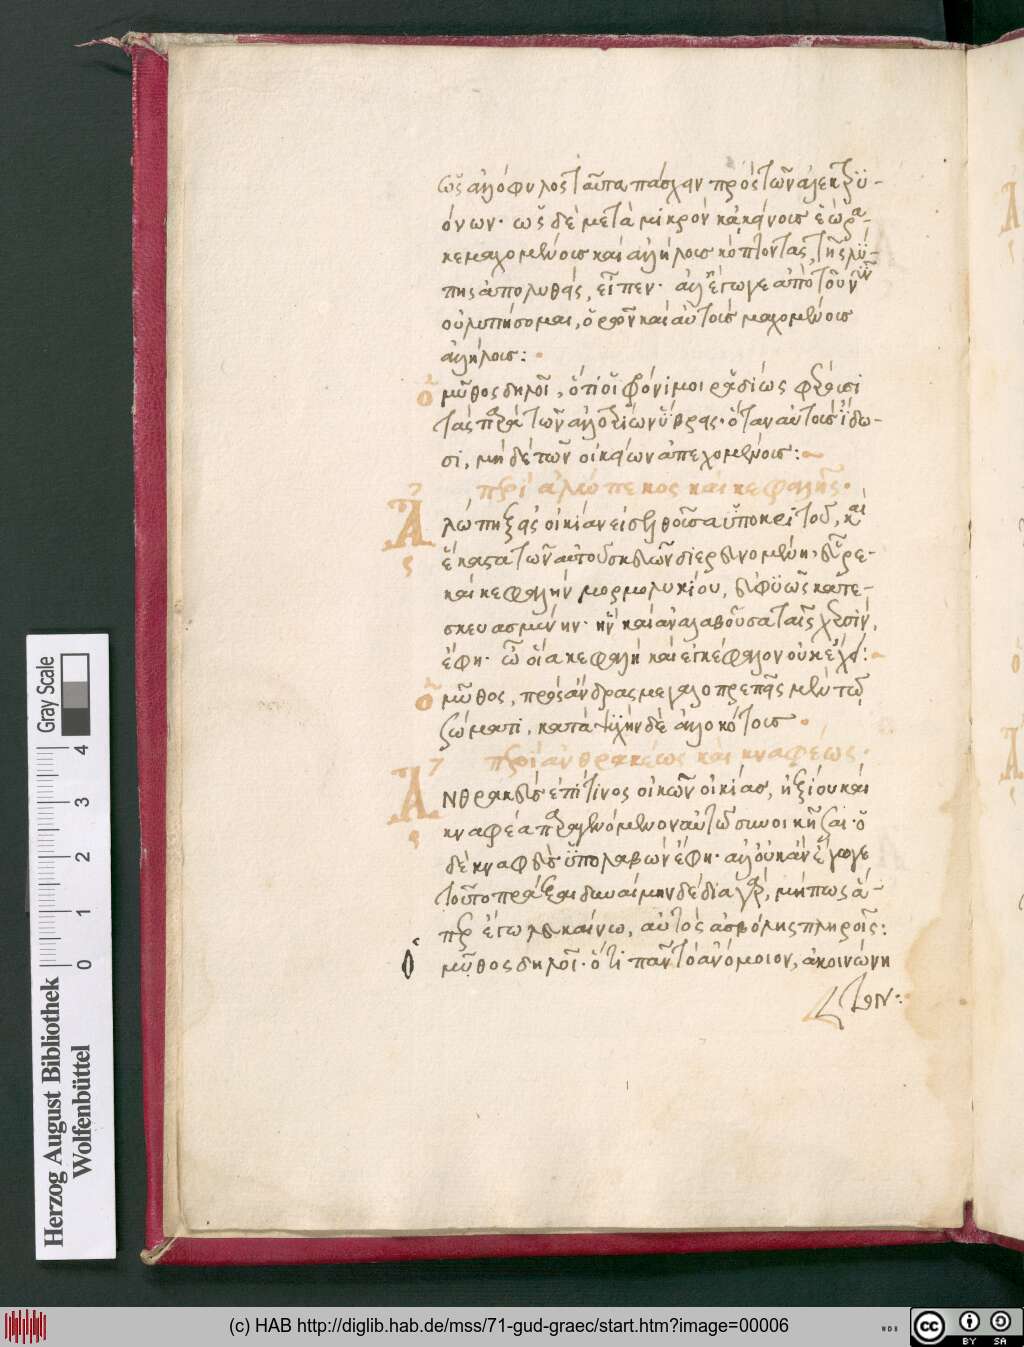 ὡς ἀλλόφυλος ταῦτα πάσχειν πρὸς τῶν ἀλεκτρυ-
όνων· ὡς δὲ μετὰ μικρὸν κἀκείνους ἑώρα-
κε μαχομένους καὶ ἀλλήλους κόπτοντας, τῆς λύ-
πης ἀπολυθείς, εἶπεν· ἀλλ' ἔγωγε ἀπὸ τοῦ νῦν
οὐ λυπήσομαι, ὁρῶν καὶ αὐτοὺς μαχομένους
ἀλλήλοις:
ὁ μῦθος δηλοῖ, ὅτι οἱ φρόνιμοι ῥᾳδίως φέρουσι
τὰς παρὰ τῶν ἀλλοτρίων ὕβρεις· ὅταν αὐτοὺς ἴδω-
σι, μηδὲ τῶν οἰκείων ἀπεχομένους:
περὶ ἀλώπεκος καὶ κεφαλῆς·
Ἀλώπηξ εἰς οἰκίαν εἰσελθοῦσα ὑποκριτοῦ, καὶ
ἕκαστα τῶν αὐτοῦ σκευῶν διερευνομένη, εὗρε
καὶ κεφαλὴν μορμολυκίου, εὐφυῶς κατε-
σκευασμένην· ἣν καὶ ἀναλαβοῦσα ταῖς χερσίν,
ἔφη· ὦ οἵα κεφαλὴ καὶ ἐγκέφαλον οὐκ ἔχει:
ὁ μῦθος, πρὸς ἄνδρας μεγαλοπρεπεῖς μὲν τῷ
σώματι, κατὰ ψυχὴν δὲ ἀλογίστους
περὶ ἀνθρακέως καὶ κναφέως·
Ἀνθρακεὺς ἐπί τινος οἰκῶν οἰκίας, ἠξίου καὶ
κναφέα παραγενόμενον αὐτῷ συνοικῆσαι· ὁ
δὲ κναφεὺς ὑπολαβὼν ἔφη· ἀλλ' οὐκ ἂν ἔγωγε
τοῦτο πρᾶξαι δυναίμην δέδια γάρ, μήπως ἅ-
περ ἐγὼ λευκαίνω, αὐτὸς ἀσβόλης πληροῖς:
ὁ μῦθος δηλοῖ· ὅτι πᾶν τὸ ἀνόμοιον, ἀκοινώνη
τον:
Herzog August Bibliothek
Wolfenbüttel
Gray Scale
0 1 2 3 4
(c) HAB http://diglib.hab.de/mss/71-gud-graec/start.htm?image=00006
WDB
cc BY SA